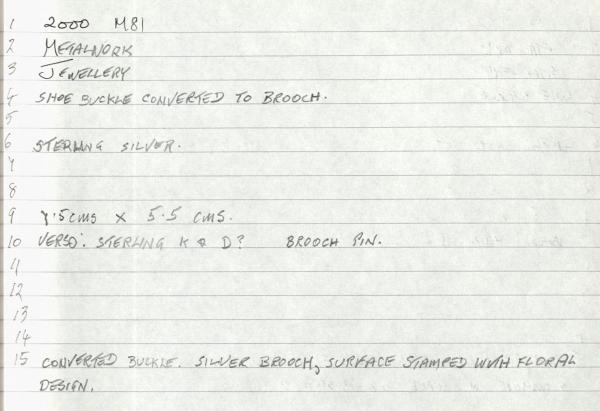 1 2000 M81
2 METALWORK
3 JEWELLERY
4 SHOE BUCKLE CONVERTED TO BROOCH.
5
6 STERLING SILVER.
7
8
9 7.5cms x 5.5 cms.
10 VERSO: STERLING K & D? BROOCH PIN.
11
12
13
14
15 CONVERTED BUCKLE. SILVER BROOCH, SURFACE STAMPED WITH FLORAL
DESIGN.